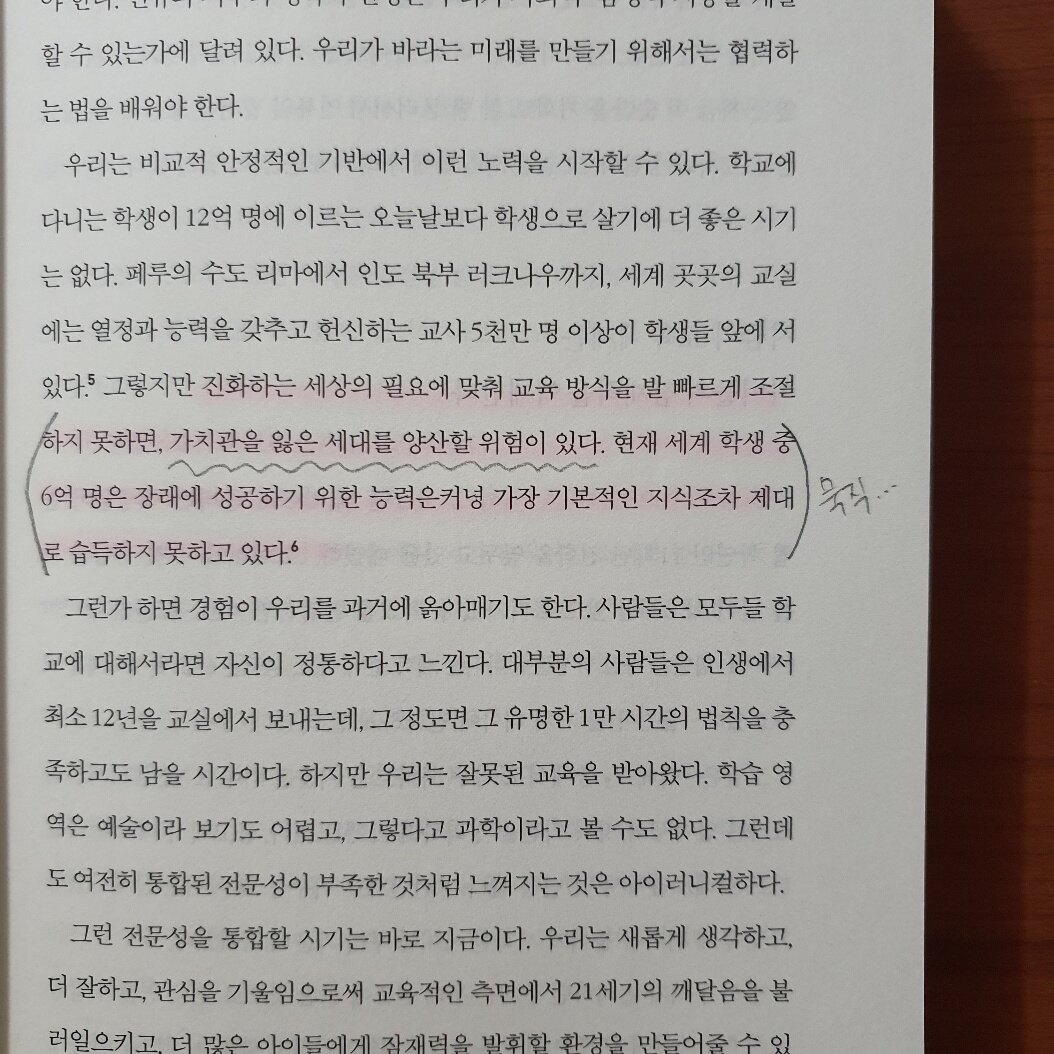 할 수 있는가에 달려 있다. 우리가 바라는 미래를 만들기 위해서는 협력하
는 법을 배워야 한다.
우리는 비교적 안정적인 기반에서 이런 노력을 시작할 수 있다. 학교에
다니는 학생이 12억 명에 이르는 오늘날보다 학생으로 살기에 더 좋은 시기
는 없다. 페루의 수도 리마에서 인도 북부 러크나우까지, 세계 곳곳의 교실
에는 열정과 능력을 갖추고 헌신하는 교사 5천만 명 이상이 학생들 앞에 서
있다.5 그렇지만 진화하는 세상의 필요에 맞춰 교육 방식을 발 빠르게 조절
하지 못하면, 가치관을 잃은 세대를 양산할 위험이 있다. 현재 세계 학생 중
6억 명은 장래에 성공하기 위한 능력은커녕 가장 기본적인 지식조차 제대
묵직...
로 습득하지 못하고 있다.6
그런가 하면 경험이 우리를 과거에 옭아매기도 한다. 사람들은 모두들 학
교에 대해서라면 자신이 정통하다고 느낀다. 대부분의 사람들은 인생에서
최소 12년을 교실에서 보내는데, 그 정도면 그 유명한 1만 시간의 법칙을 충
족하고도 남을 시간이다. 하지만 우리는 잘못된 교육을 받아왔다. 학습 영
역은 예술이라 보기도 어렵고, 그렇다고 과학이라고 볼 수도 없다. 그런데
도 여전히 통합된 전문성이 부족한 것처럼 느껴지는 것은 아이러니컬하다.
그런 전문성을 통합할 시기는 바로 지금이다. 우리는 새롭게 생각하고,
더 잘하고, 관심을 기울임으로써 교육적인 측면에서 21세기의 깨달음을 불
러일으키고, 더 많은 아이들에게 잠재력을 발휘할 환경을 만들어줄 수 있